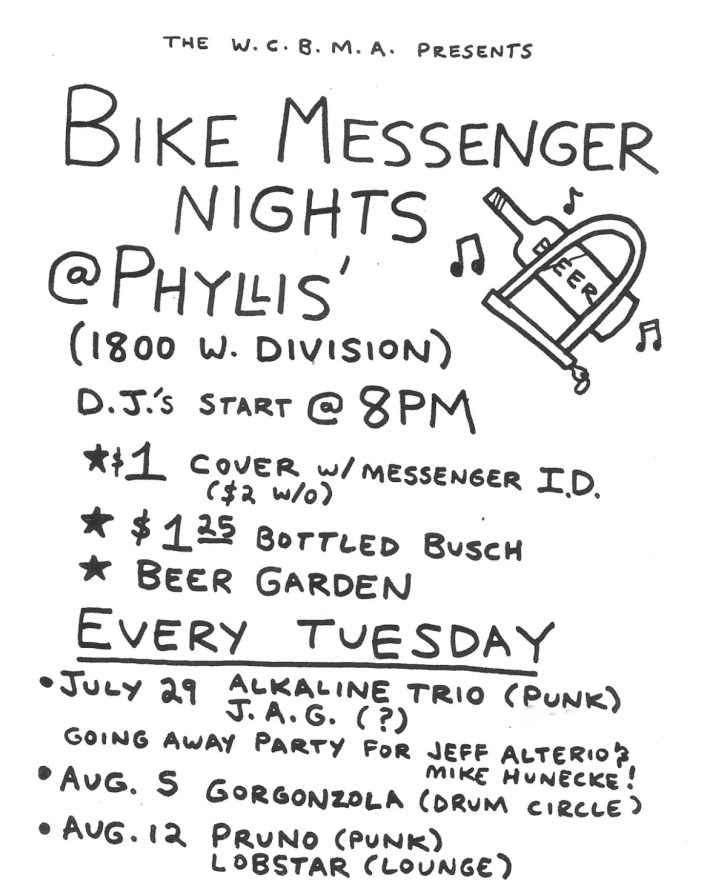 THE W.C.B.M.A. PRESENTS
BIKE MESSENGER
NIGHTS
@PHYLLIS'
BEER
(1800 W. DIVISION)
D.J.'s START @ 8PM
★$1 COVER w/MESSENGER I.D.
($2 w/o)
★ $1 25 BOTTLED BUSCH
★ BEER GARDEN
EVERY TUESDAY
• JULY 29 ALKALINE TRIO (PUNK)
J.A.G. (?)
GOING AWAY PARTY FOR JEFF ALTERIO &
MIKE HUNECKE!
• AUG. 5 GORGONZOLA (DRUM CIRCLE)
• AUG. 12 PRUNO (PUNK)
LOBSTAR (LOUNGE)